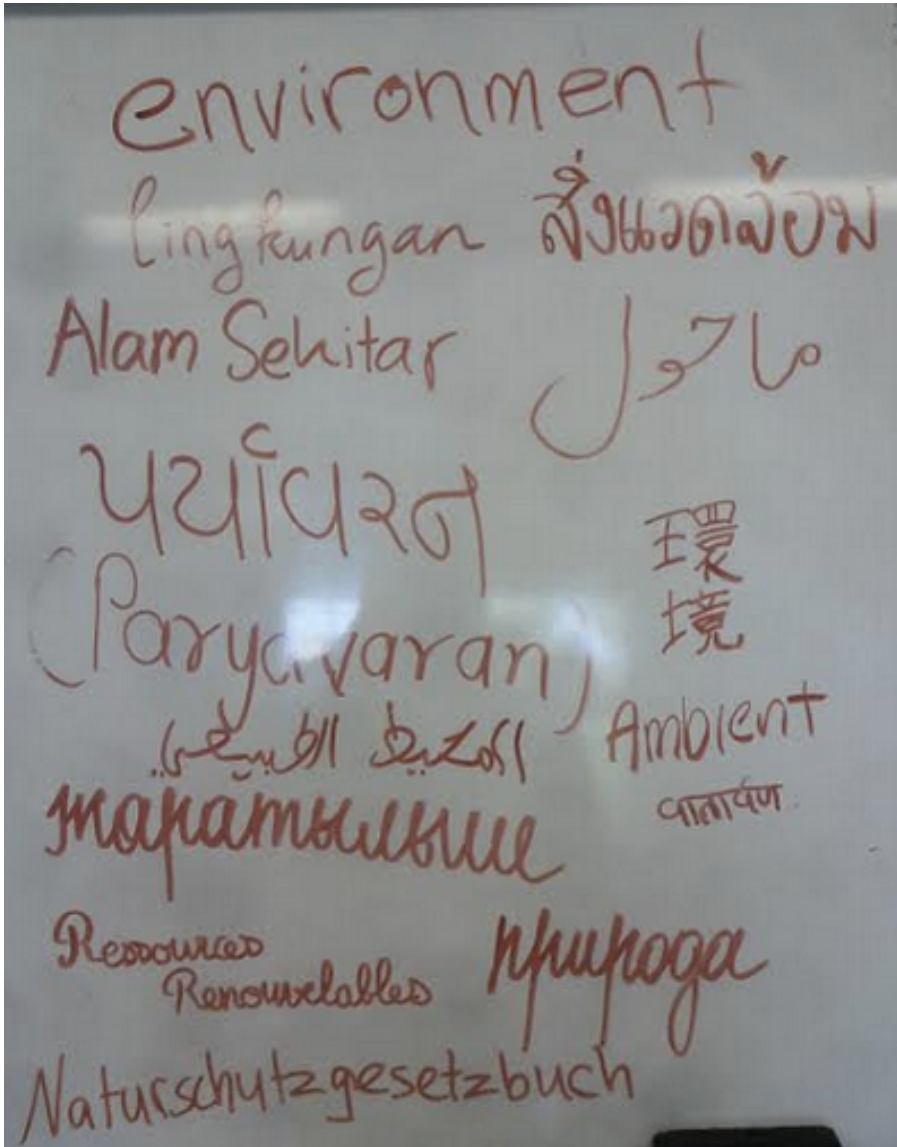 environment
lingkungan สิ่งแวดล้อม
Alam Sekitar ماحول
પર્યાવરન
(Paryavaran)
環
境
المحيط الطبيعي
Ambient
жаратылыш
Ressources
Renouvelables
природа
Naturschutzgesetzbuch